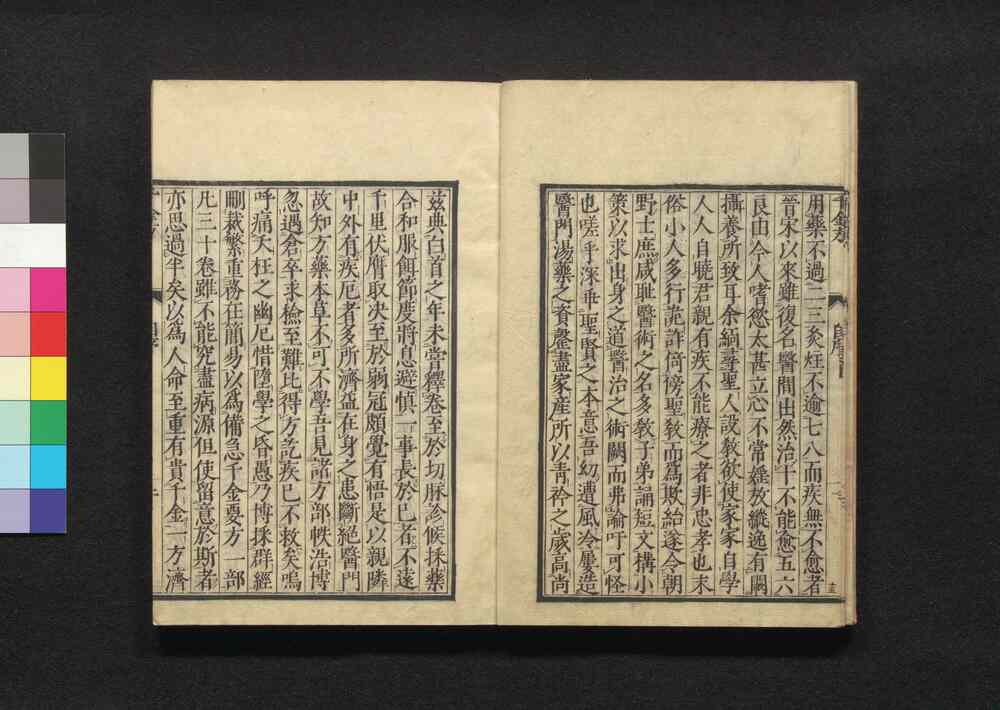 用藥不過二三灸炷不逾七八而疾無不愈者
晉宋以來雖復名醫間出然治十不能愈五六
良由今人嗜慾太甚立心不常婬放縱逸有闕
攝養所致耳余緬尋聖人設教欲使家家自學
人人自曉君親有疾不能療之者非忠孝也末
俗小人多行詭詐倚傍聖教而爲欺紿遂令朝
野士庶咸耻醫術之名多教子弟誦短文搆小
策以求出身之道醫治之術闕而弗論吁可怪
也嗟乎深乖聖賢之本意吾幼遭風冷屢造
醫門湯藥之資罄盡家産所以青衿之歲高尚
茲典白首之年未嘗釋卷至於切脉診候採藥
合和服餌節度將息避慎一事長於己者不遠
千里伏膺取决至於弱冠頗覺有悟是以親隣
中外有疾厄者多所濟益在身之患斷絕醫門
故知方藥本草不可不學吾見諸方部帙浩博
忽遇倉卒求檢至難比得方訖疾已不救矣嗚
呼痛夭枉之幽厄惜隨學之昏愚乃博採群經
刪裁繁重務在簡易以爲備急千金要方一部
凡三十卷雖不能究盡病源但使留意於斯者
亦思過半矣以爲人命至重有貴千金一方濟